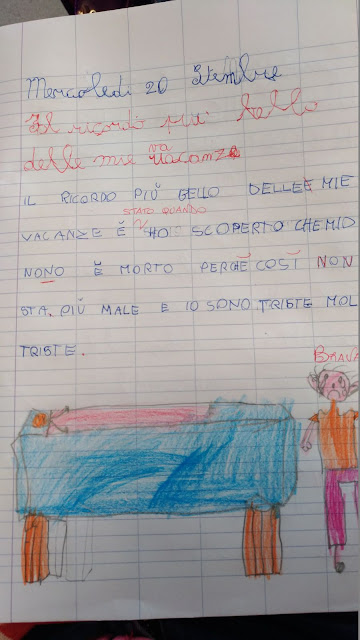 Mercoledì 20 Settembre
Il ricordo più bello
delle mie vacanze
IL RICORDO PIÚ BELLO DELLE MIE
STATO QUANDO
VACANZE É HO SCOPERTO CHE MIO
NONO É MORTO PERCHÉ COSÍ NON
STA PIÚ MALE E IO SONO TRISTE MOL
TRISTE.
BRAVA